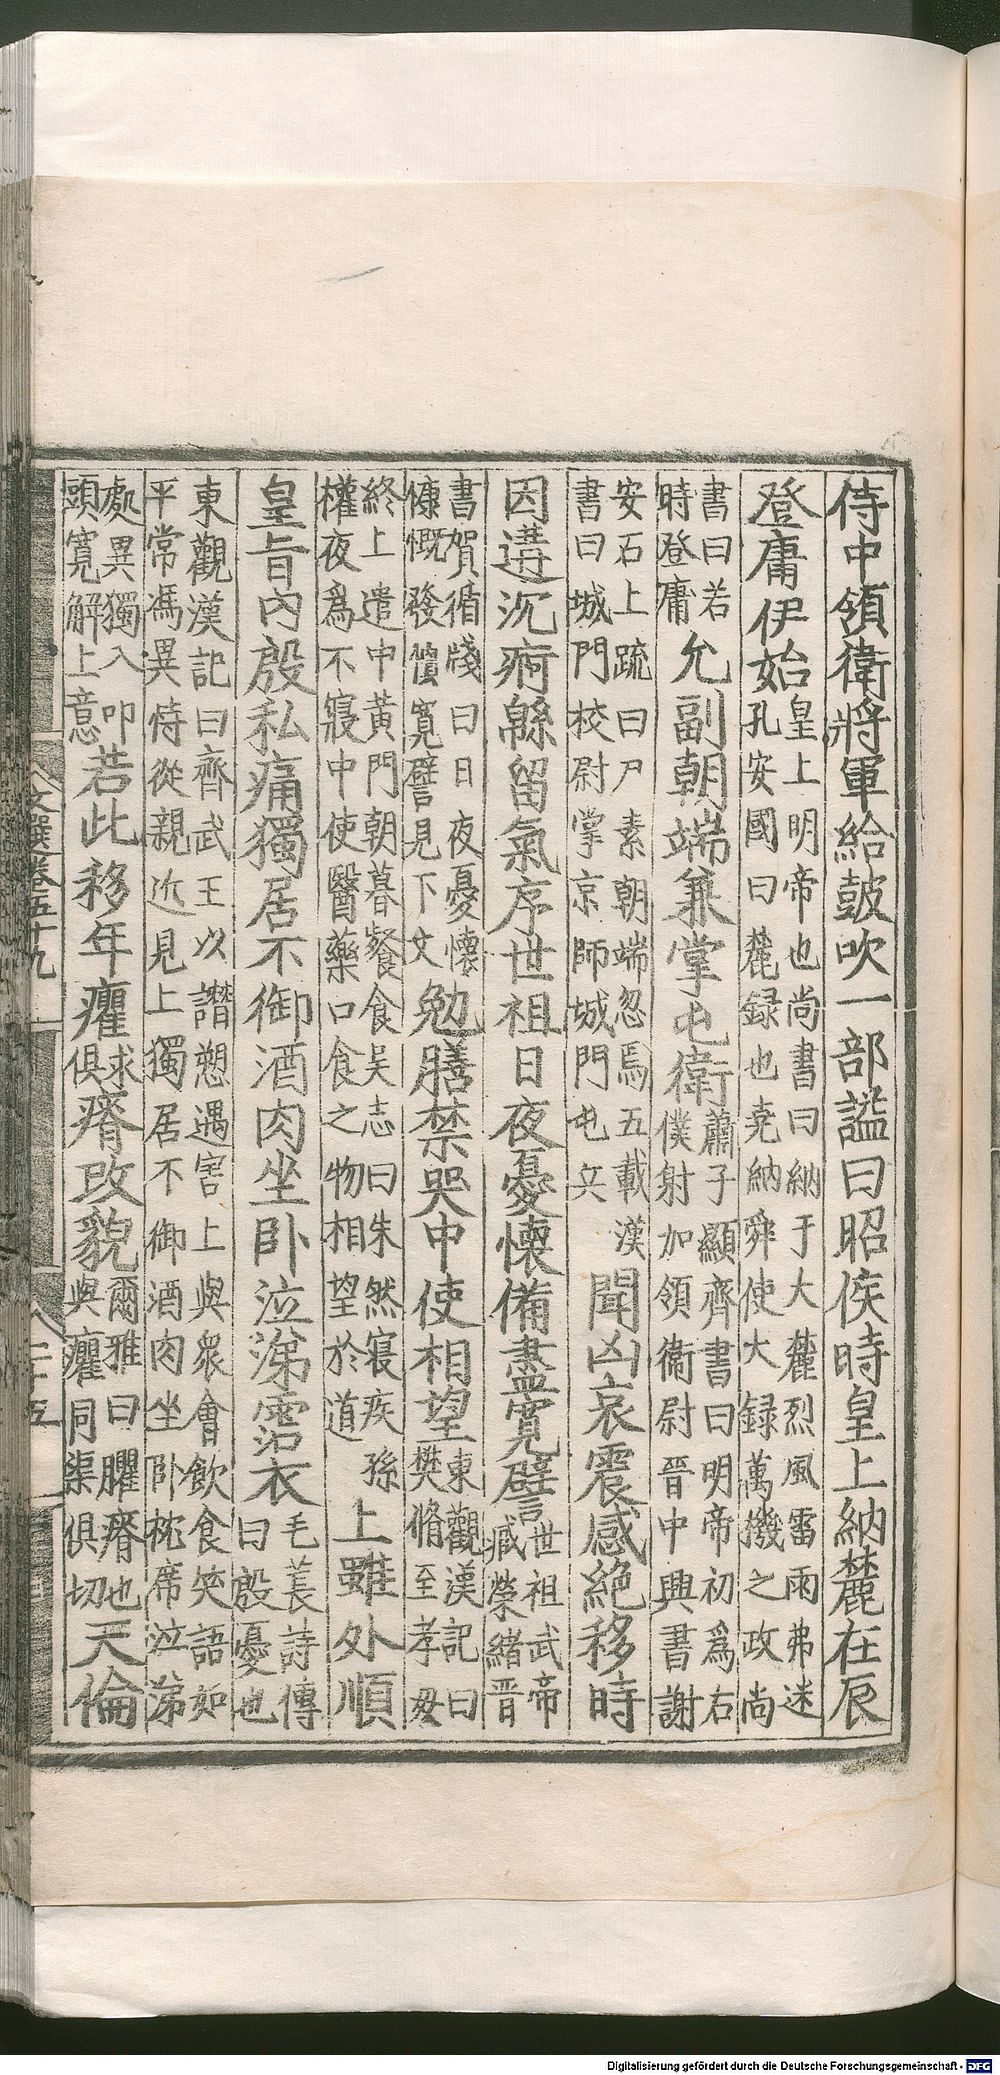 侍中領衛將軍給鼓吹一部謚曰昭侯時皇上納麓在辰
登庸伊始皇上明帝也尚書曰納于大麓烈風雷雨弗迷孔安國曰麓録也堯納舜使大録萬機之政尚
書曰若時登庸允副朝端兼掌屯衛蕭子顯齊書曰明帝初為右僕射加領衞尉晉中興書謝
安石上疏曰尸素朝端忽焉五載漢書曰城門校尉掌京師城門屯兵聞凶哀震感絶移時
因遘沉痾緜留氣序世祖日夜憂懷備盡寬譬世祖武帝臧榮緒晉
書賀循牋曰日夜憂懷慷慨發憤寬譬見下文勉膳禁哭中使相望東觀漢記曰樊脩至孝毋
終上遣中黃門朝暮餐食吴志曰朱然寢疾孫權夜爲不寢中使醫藥口食之物相望於道上雖外順
皇旨內殷私痛獨居不御酒肉坐卧泣涕霑衣毛萇詩傳曰殷憂也
東觀漢記曰齊武王以譖愬遇害上與衆會飲食笑語如平常馮異侍從親近見上獨居不御酒肉坐卧枕席泣涕
處異獨入叩頭寬解上意若此移年癯求俱瘠改貌爾雅曰臞瘠也與癯同渠俱切天倫
文選卷五十九
二十五
Digitalisierung gefördert durch die Deutsche Forschungsgemeinschaft - DFG